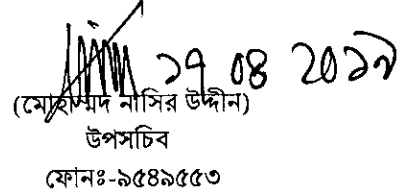 ১৭ ০৪ ২০১৭
(মোহাম্মদ নাসির উদ্দীন)
উপসচিব
ফোনঃ-৯৫৪৯৫৫৩